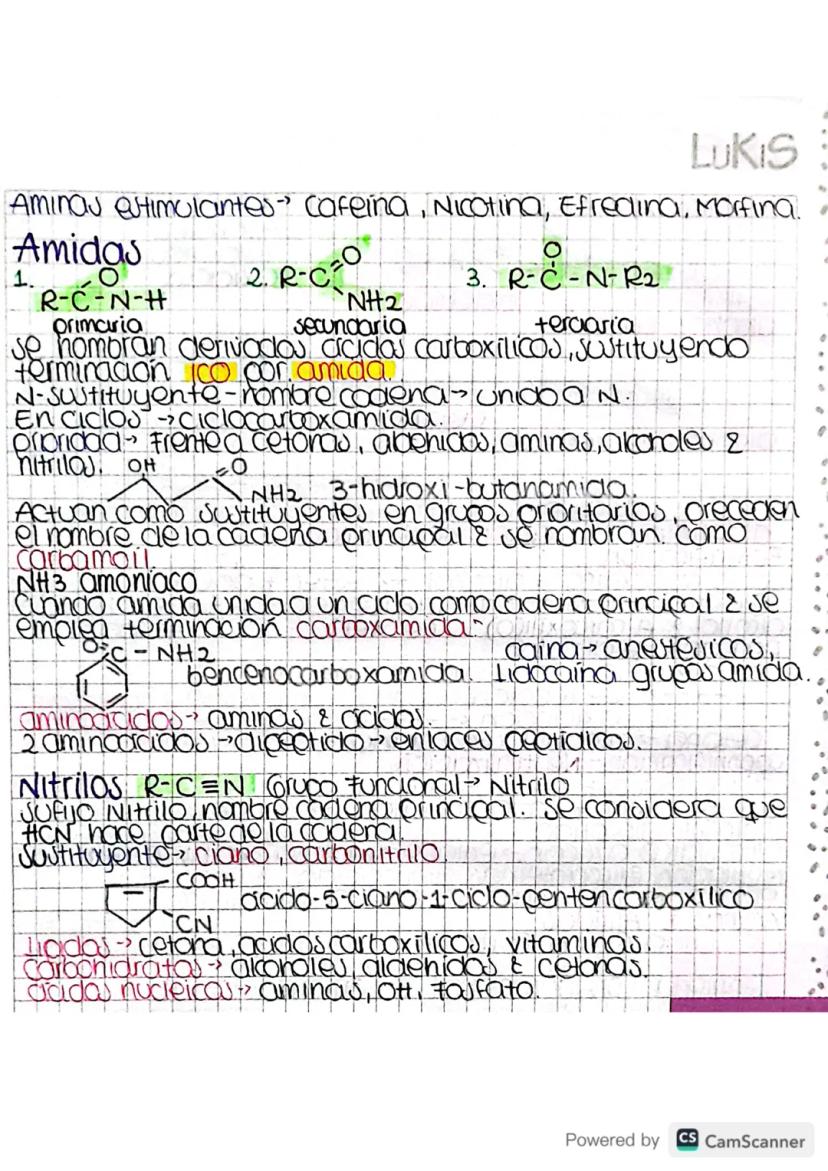 LUKIS
Aminas estimulantes → cafeína, Nicotina, Efredina, Morfina.
Amidas
1. R-C-N-H O
2. R-C=O NH2
3. R-C-N-R2 O
primaria secundaria terciaria
se nombran derivados ácidos carboxílicos, sustituyendo
terminación ICO por amida.
N-sustituyente-nombre cadena → unido a N.
En ciclos → ciclocarboxamida.
prioridad → frente a cetonas, aldehidos, aminas, alcoholes &
nitrilos.
OH =O NH2 3-hidroxi-butanamida.
Actuan como sustituyentes en grupos prioritarios, preceden
el nombre de la cadena principal & se nombran como
carbamoil.
NH3 amoniaco
Cuando amida unida a un ciclo como cadena principal & se
emplea terminación carboxamida-
O=C-NH2 caina → anestésicos,
bencenocarboxamida. Lidocaína grupos amida.
aminoácidos → aminas & ácidos.
2 aminoácidos → dipeptido → enlaces peptídicos.
Nitrilos R-C≡N Grupo funcional → Nitrilo
sufijo Nitrilo, nombre cadena principal. se considera que
HCN hace parte de la cadena.
sustituyente → ciano, carbonitrilo.
COOH
ácido-5-ciano-1-ciclo-pentencarboxílico
CN
Lípidos → cetona, acidos carboxílicos, vitaminas.
carbohidratos → alcoholes, aldehidos & cetonas.
ácidos nucleicos → aminas, OH, fosfato.
Powered by CS CamScanner